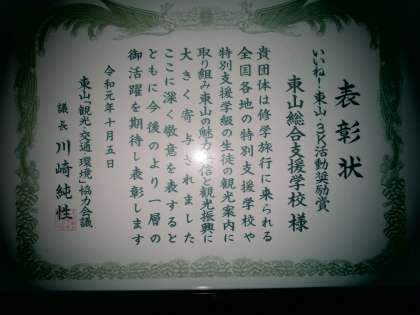 表彰状
いいね！東山 3K活動奨励賞
東山総合支援学校 様
貴団体は修学旅行に来られる
全国各地の特別支援学校や
特別支援学級の生徒の観光案内に
取り組み東山の魅力発信と観光振興に
大きく寄与されました
ここに深く敬意を表すると
ともに今後のより一層の
御活躍を期待し表彰します
令和元年十月五日
東山「観光・交通・環境」協力会議
議長 川崎純性